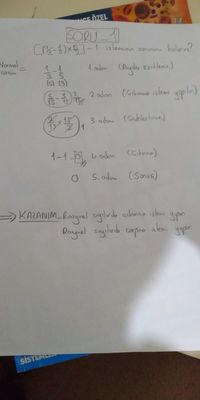 ÖZEL
SORU_1
[(1/3 - 1/5) × 15/2] - 1 işleminin sonucu kaçtır?
Normal çözüm =
1/3 - 1/5 1. adım (Payda eşitleme)
(5) (3)
5/15 - 3/15 = 2/15 2. adım (Çıkarma işlemi yapılır)
2/15 × 15/2 1 3. adım (Sadeleştirme)
1 - 1 = 0 4. adım (Çıkarma)
0 5. adım (Sonuç)
⇒ KAZANIM = Rasyonel sayılarla çıkarma işlemi yapar.
Rasyonel sayılarla çarpma işlemi yapar.